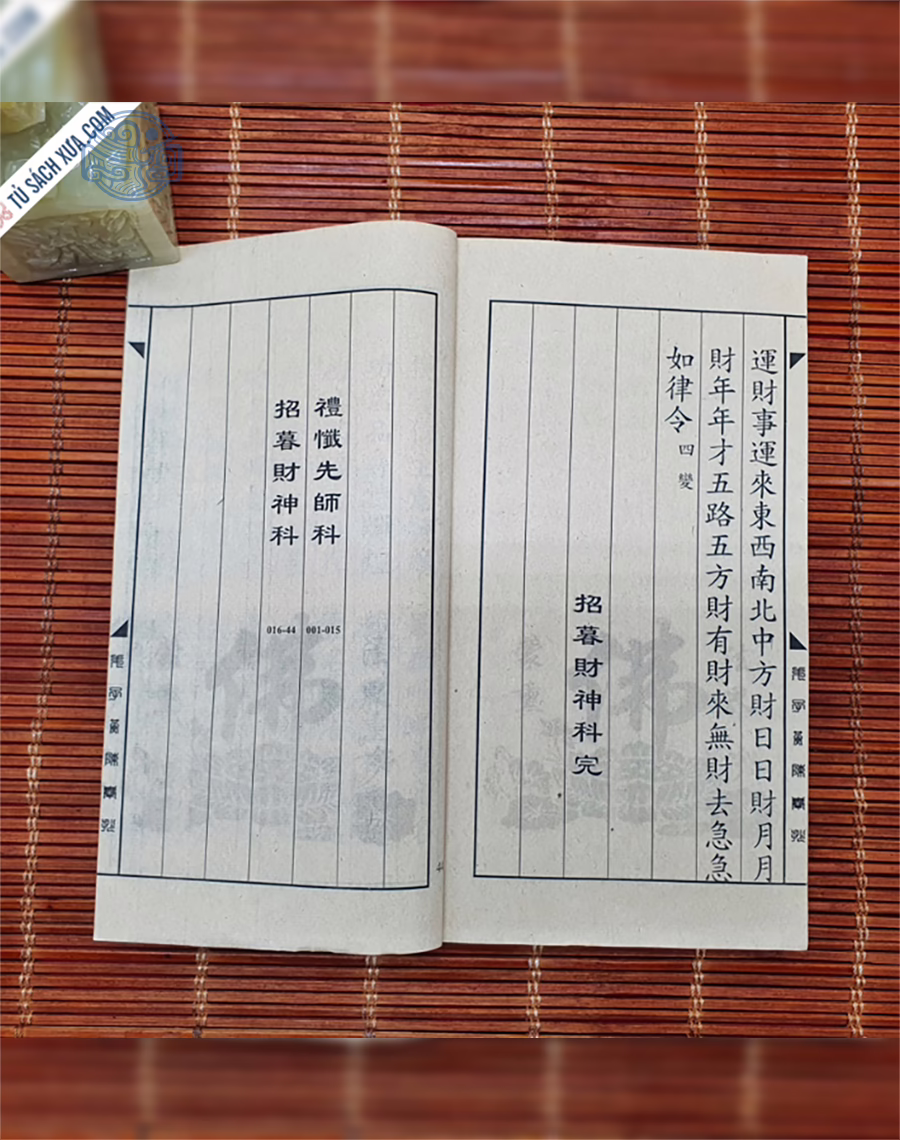 TỦ SÁCH XƯA.COM
運財事運來東西南北中方財日日財月月
財年年才五路五方財有財來無財去急急
如律令 四變
招暮財神科完
禮懺先師科
001-015
招暮財神科
016-44